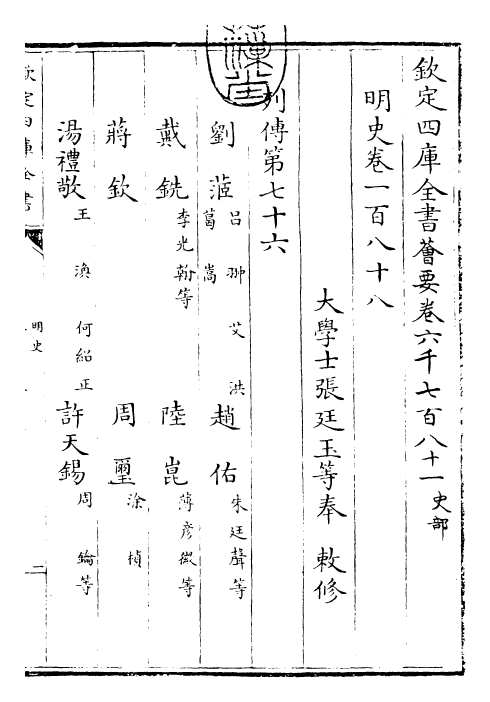 欽定四庫全書薈要卷六千七百八十一 史部
明史卷一百八十八
大學士張廷玉等奉 敕修
列傳第七十六
劉菃 呂翀 艾洪 葛嵩 趙佑 朱廷聲等
戴銑 李光翰等 陸崑 薄彥徽等
蔣欽 周璽 涂禎
湯禮敬 王渙 何紹正 許天錫 周鑰等
欽定四庫全書
明史
二